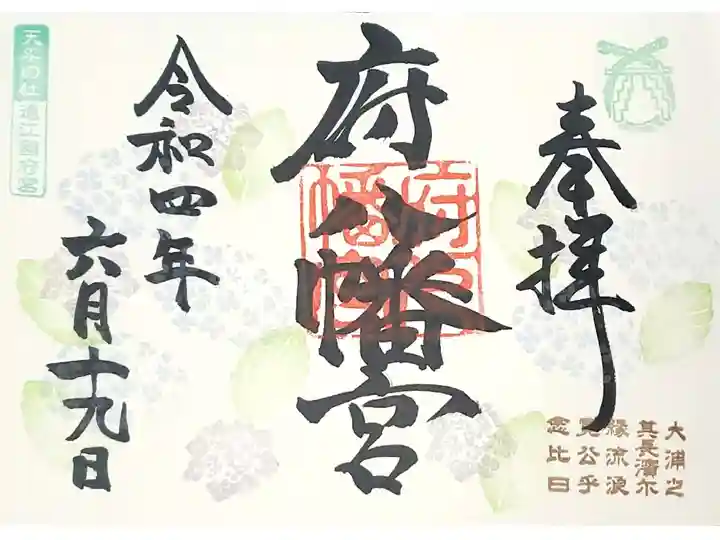 奉拝
府八幡宮
令和四年
六月十九日
天平の杜
遠江國府宮
大浦之
其長濱尓
縁流浪
寛公乎
念比日